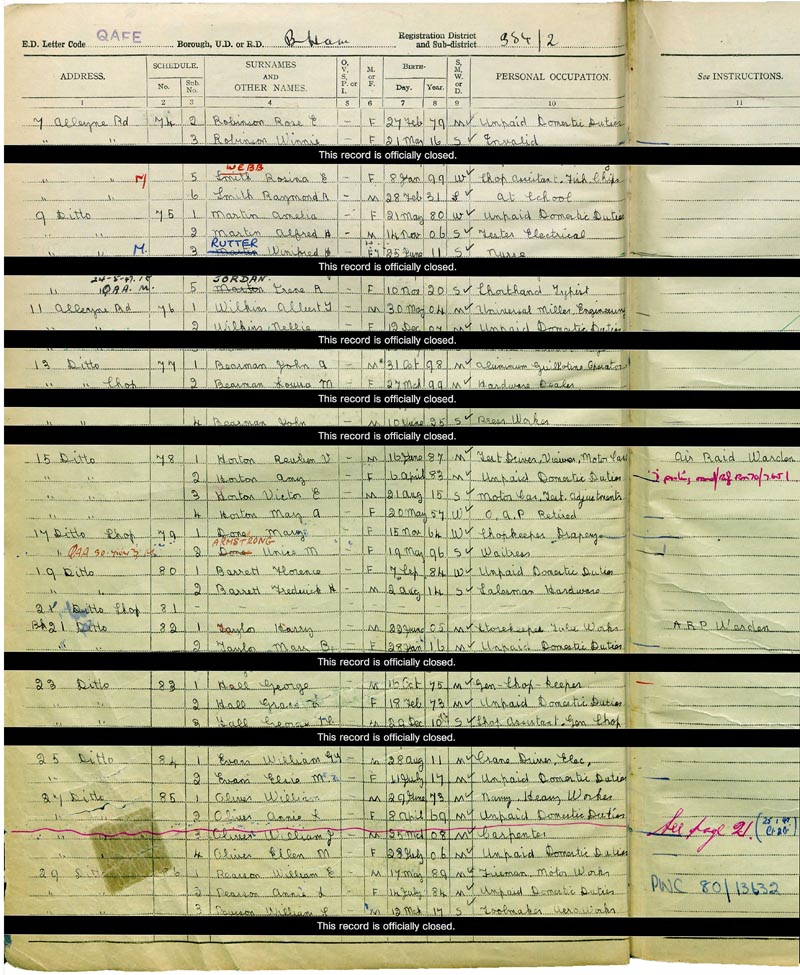 E.D. Letter Code QAFE Borough, U.D. or R.D. B'Ham Registration District and Sub-district 384/2
ADDRESS. SCHEDULE. No. Sub. No. SURNAMES AND OTHER NAMES. O., V., S., P. or I. M. or F. BIRTH— Day. Year. S., M., W. or D. PERSONAL OCCUPATION. See INSTRUCTIONS.
1 2 3 4 5 6 7 8 9 10 11
7 Alleyne Rd 74 2 Robinson Rose E - F 27 Feb 79 M Unpaid Domestic Duties
" " 3 Robinson Winnie - F 21 May 16 S Invalid
This record is officially closed.
WEBB
" " M/ 5 Smith Rosina E - F 8 Jan 99 W Shop Assistant, Fish, Chips
" " 6 Smith Raymond A - M 28 Feb 31 S At School
9 Ditto 75 1 Martin Amelia - F 21 May 80 W Unpaid Domestic Duties
" " 2 Martin Alfred H - M 14 Nov 06 S Tester Electrical
RUTTER
" M. 3 Martin Winifred - F 25 June 11 S Nurse
This record is officially closed.
24-5-47. JORDAN.
QAA M. 5 Martin Irene A - F 10 Nov 20 S Shorthand Typist
11 Alleyne Rd 76 1 Wilkins Albert - M 30 May 04 M Universal Miller, Engineering
" " 2 Wilkins Nellie - F 12 Dec 07 M Unpaid Domestic Duties
This record is officially closed.
13 Ditto 77 1 Bearman John - M 31 Oct 98 M Aluminum Guillotine Operator
" " Shop 2 Bearman Louisa M - F 27 Mch 99 M Hardware Dealer
This record is officially closed.
" " 4 Bearman John - M 10 June 25 S Press Worker
This record is officially closed.
15 Ditto 78 1 Horton Reuben V - M 16 June 87 M Test Driver, Viewer, Motor Cars Air Raid Warden
" " 2 Horton Amy - F 6 April 83 M Unpaid Domestic Duties
" " 3 Horton Victor E - M 21 Aug 15 S Motor Car, Test, Adjustments
" " 4 Horton Mary A - F 20 May 57 W O.A.P Retired
17 Ditto Shop 79 1 Done Mary - F 15 Nov 64 W Shopkeeper Drapery
ARMSTRONG
" QAA 2 Done Unice M - F 19 May 96 S Waitress
19 Ditto 80 1 Barrett Florence - F 7 Sep 84 W Unpaid Domestic Duties
" " 2 Barrett Frederick H - M 2 Aug 14 S Salesman Hardware
21 Ditto Shop 81 - - - - - -
Bk 21 Ditto 82 1 Taylor Harry - M 22 June 05 M Storekeeper Tube Works A.R.P Warden
" " 2 Taylor Mary B. - F 28 Jan 16 M Unpaid Domestic Duties
This record is officially closed.
23 Ditto 83 1 Hall George - M 15 Oct 75 M Gen-Shop-Keeper
" " 2 Hall Grace - F 18 Feb 73 M Unpaid Domestic Duties
" " 3 Hall George - M 29 Dec 10 S Shop Assistant Gen Shop
This record is officially closed.
25 Ditto 84 1 Evans William - M 28 Aug 11 M Crane Driver, Elec,
" " 2 Evans Elsie M - F 11 July 17 M Unpaid Domestic Duties
27 Ditto 85 1 Oliver William - M 29 June 73 M Navvy, Heavy Worker
" 2 Oliver Annie L - F 8 April 69 M Unpaid Domestic Duties See page 21.
3 Oliver William J - M 25 Mch 08 M Carpenter
4 Oliver Ellen M - F 28 July 06 M Unpaid Domestic Duties
29 Ditto 86 1 Pearson William E - M 17 May 89 M Fireman, Motor Works PWC 80/13632
" 2 Pearson Annie L - F 14 July 84 M Unpaid Domestic Duties
" 3 Pearson William - M 12 Mch 17 S Toolmaker Aero Works
This record is officially closed.